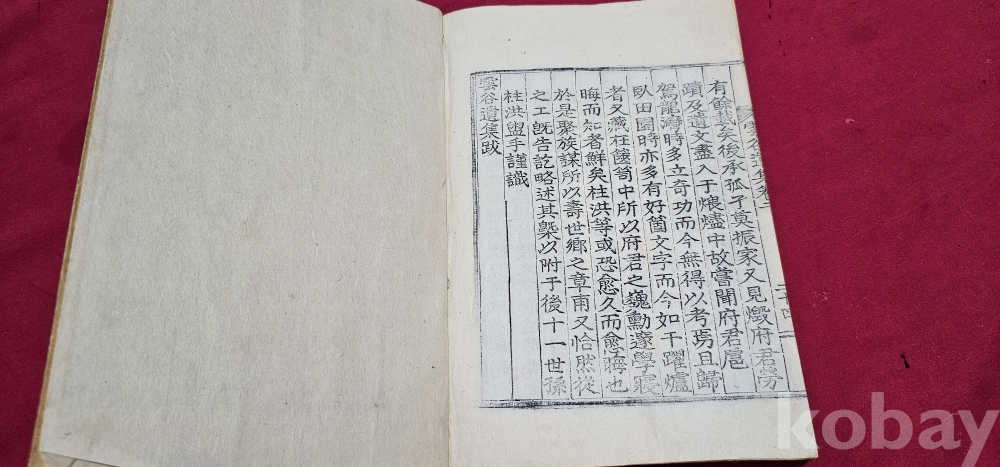 有餘載矣後承孤孑莫振家又見燬府君勞
蹟及遺文盡入于煨燼中故嘗聞府君扈
駕龍灣時多立奇功而今無得以考焉且歸
臥田園時亦多有好箇文字而今如干躍爐
者又藏在篋笥中所以府君之巍勳邃學寢
晦而知者鮮矣柱洪等或恐愈久而愈晦也
於是聚族謀所以壽世鄕之章甫又恰然從
之工旣告訖略述其槩以附于後十一世孫
柱洪盥手謹識
雲谷遺集跋
kobay